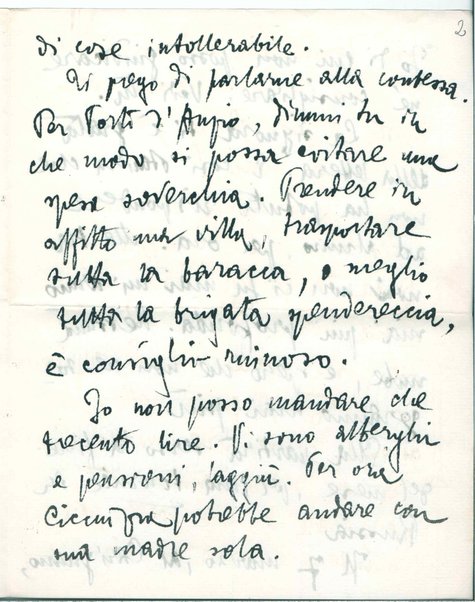 2
di cose intollerabile.
Ti prego di parlarne alla contessa.
Per Porto d'Anzio, dimmi tu in
che modo si possa evitare una
spesa soverchia. Prendere in
affitto una villa, trasportare
tutta la baracca, o meglio
tutta la brigata spendereccia,
è consiglio ruinoso.
Io non posso mandare che
trecento lire. Vi sono alberghi
e pensioni, laggiù. Per ora
Cicciuzza potrebbe andare con
sua madre sola.